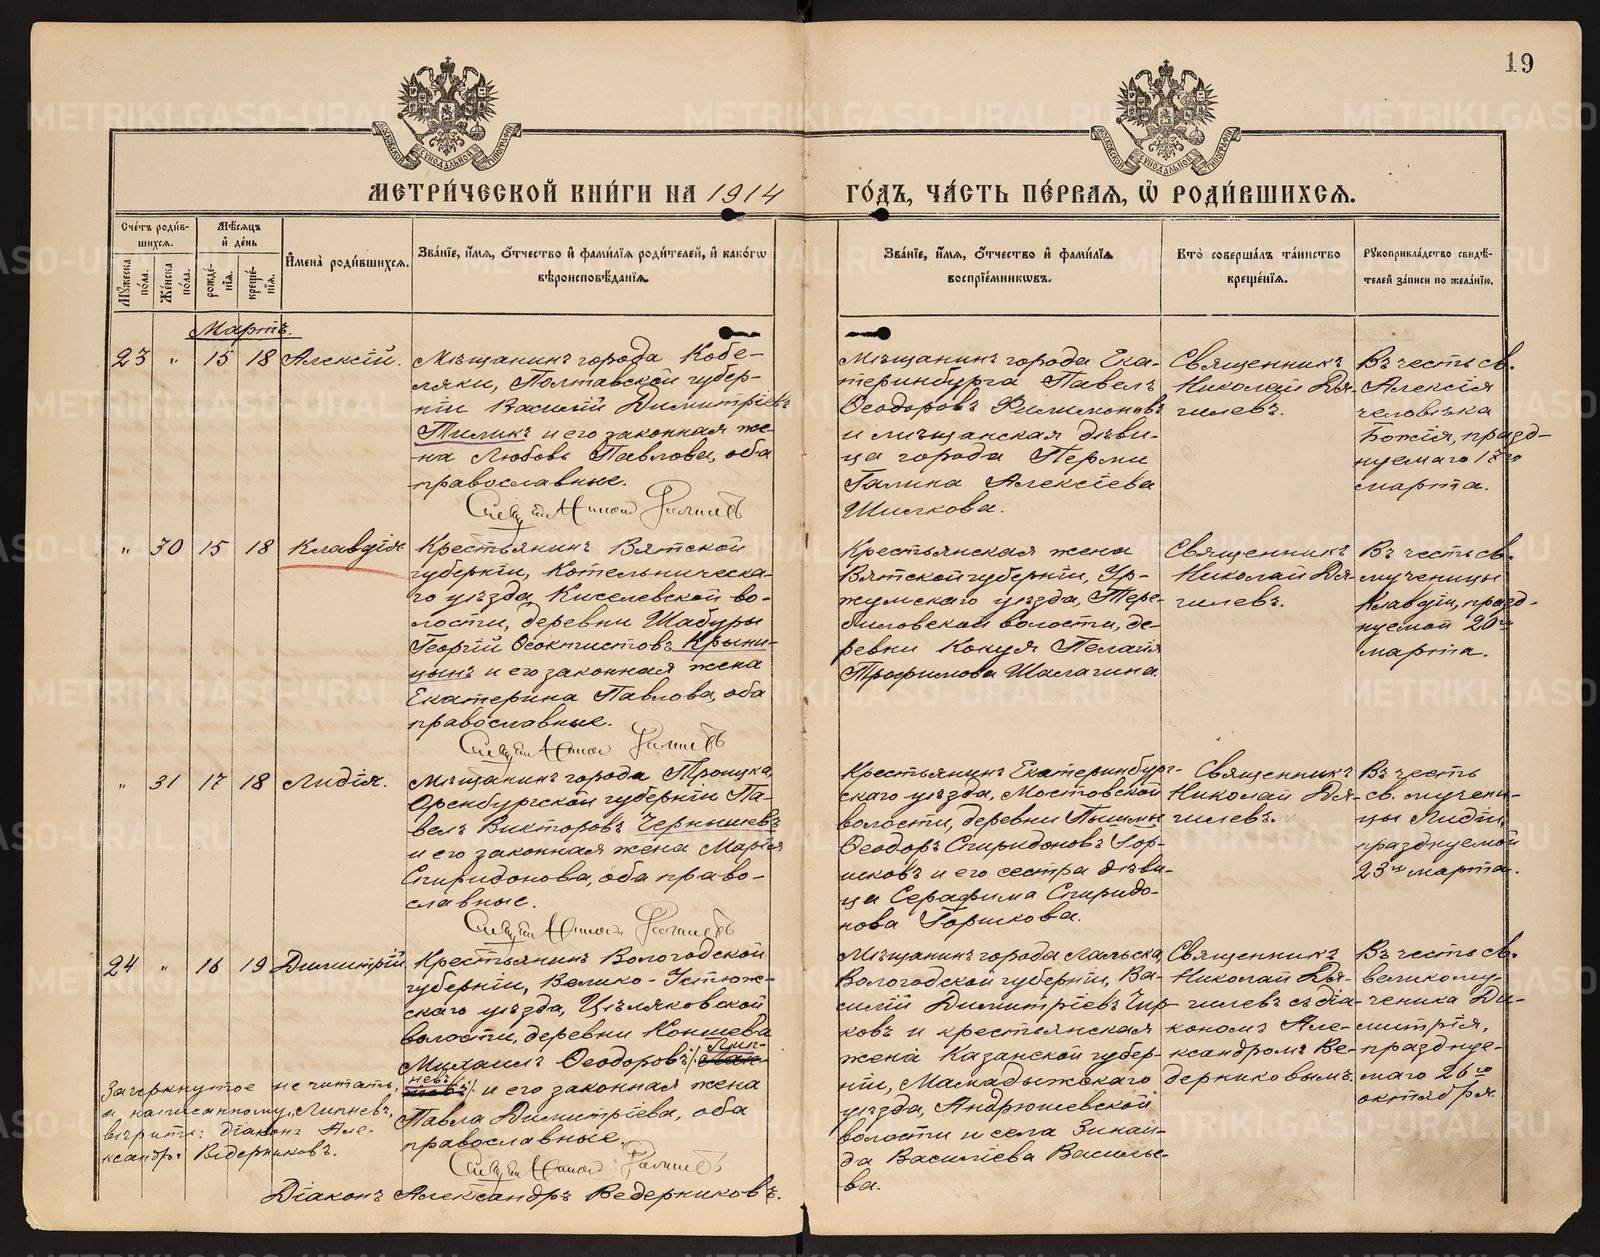 19
МОСКОВСКОЙ СѴНОДАЛЬНОЙ ТИПОГРАФІИ
МОСКОВСКОЙ СѴНОДАЛЬНОЙ ТИПОГРАФІИ
МЕТРИ́ЧЕСКОЙ КНИ́ГИ НА 1914 ГО́ДЪ, ЧА́СТЬ ПЕ́РВАЯ, Ѡ҆ РОДИ́ВШИХСЯ.
Сче́тъ роди́в-
шихся.
Му́жеска по́ла.
Же́нска по́ла.
Мѣ́сяцъ
и҆ де́нь
рожде́-
нїя.
креще́-
нїя.
И҆мена̀ роди́вшихся.
Зва́нїе, и҆́мя, ѻ҆́тчество и҆ фами́лїя роди́телей, и҆ како́гѡ
вѣроисповѣ́данїя.
Зва́нїе, и҆́мя, ѻ҆́тчество и҆ фами́лїя
воспрїе́мникѡвъ.
Кто̀ соверша́лъ та́инство
креще́нїя.
Рꙋкоприкла́дство свидѣ́-
телей за́писи по жела́нїю.
Мартъ.
23 " 15 18 Алексій.
Мѣщанинъ города Кобе-
ляки, Полтавской губер-
ніи Василій Димитріевъ
Тиликъ и его законная же-
на Любовь Павлова, оба
православные.
Мѣщанинъ города Ека-
теринбурга Павелъ
Ѳеодоровъ Филимоновъ
и мѣщанская дѣви-
ца города Перми
Галина Алексіева
Шилкова.
Священникъ
Николай Дя-
гилевъ.
Въ честь св.
Алексія
человѣка
Божія, празд-
нуемаго 17го
марта.
" 30 15 18 Клавдія
Крестьянинъ Вятской
губерніи, Котельническа-
го уѣзда Киселевской во-
лости, деревни Шабуры
Георгій Ѳеоктистовъ Крыни-
цынъ и его законная жена
Екатерина Павлова, оба
православные.
Крестьянская жена
Вятской губерніи, Ур-
жумскаго уѣзда, Тере-
биловской волости, де-
ревни Кокуя Пелагія
Трофимова Шалагина.
Священникъ
Николай Дя-
гилевъ.
Въ честь св.
мученицы
Клавдіи, празд-
нуемой 20го
марта.
" 31 17 18 Лидія.
Мѣщанинъ города Троицка,
Оренбургской губерніи Па-
велъ Викторовъ Чернышевъ
и его законная жена Марія
Спиридонова, оба право-
славные.
Крестьянинъ Екатеринбург-
скаго уѣзда, Мостовской
волости, деревни Пышмы
Ѳеодоръ Спиридоновъ Гор-
шковъ и его сестра дѣви-
ца Серафима Спиридо-
нова Горшкова.
Священникъ
Николай Дя-
гилевъ.
Въ честь
св. мучени-
цы Лидіи,
празднуемой
23го марта.
24 " 16 19 Димитрій
Крестьянинъ Вологодской
губерніи, Велико-Устюж-
скаго уѣзда, Цѣляковской
волости, деревни Коншева
Михаилъ Ѳеодоровъ Лип-
невъ и его законная жена
Павла Димитріева, оба
православные.
Мѣщанинъ города Лальска,
Вологодской губерніи, Ва-
силій Димитріевъ Чир-
ковъ и крестьянская
жена Казанской губер-
ніи, Мамадыжскаго
уѣзда, Андрюшевской
волости и села Зинаи-
да Василіева Василье-
ва.
Священникъ
Николай Дя-
гилевъ съ діа-
кономъ Але-
ксандромъ Ве-
дерниковымъ.
Въ честь св.
великому-
ченика Ди-
митрія,
празднуе-
маго 26го
октября.
Зачеркнутое не читать,
а написанному "Липневъ"
вѣрить: діаконъ Але-
ксандръ Ведерниковъ.
Діаконъ Александръ Ведерниковъ.
METRIKI.GASO-URAL.RU